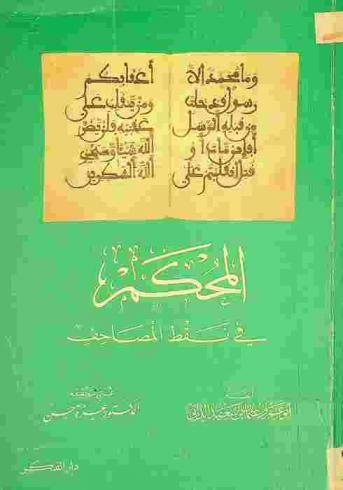 وما محمد الا
رسول قد خلت
من قبله الرسل
أفاين مات أو
قتل انقلبتم على
أعقابكم
ومن ينقلب على
عقبيه فلن يضر
الله شيئا وسيجزي
الله الشكرين
المحكم
في نقط المصاحف
أبو عمرو عثمان بن سعيد الداني
الدكتور عزة حسن
دار الفكر